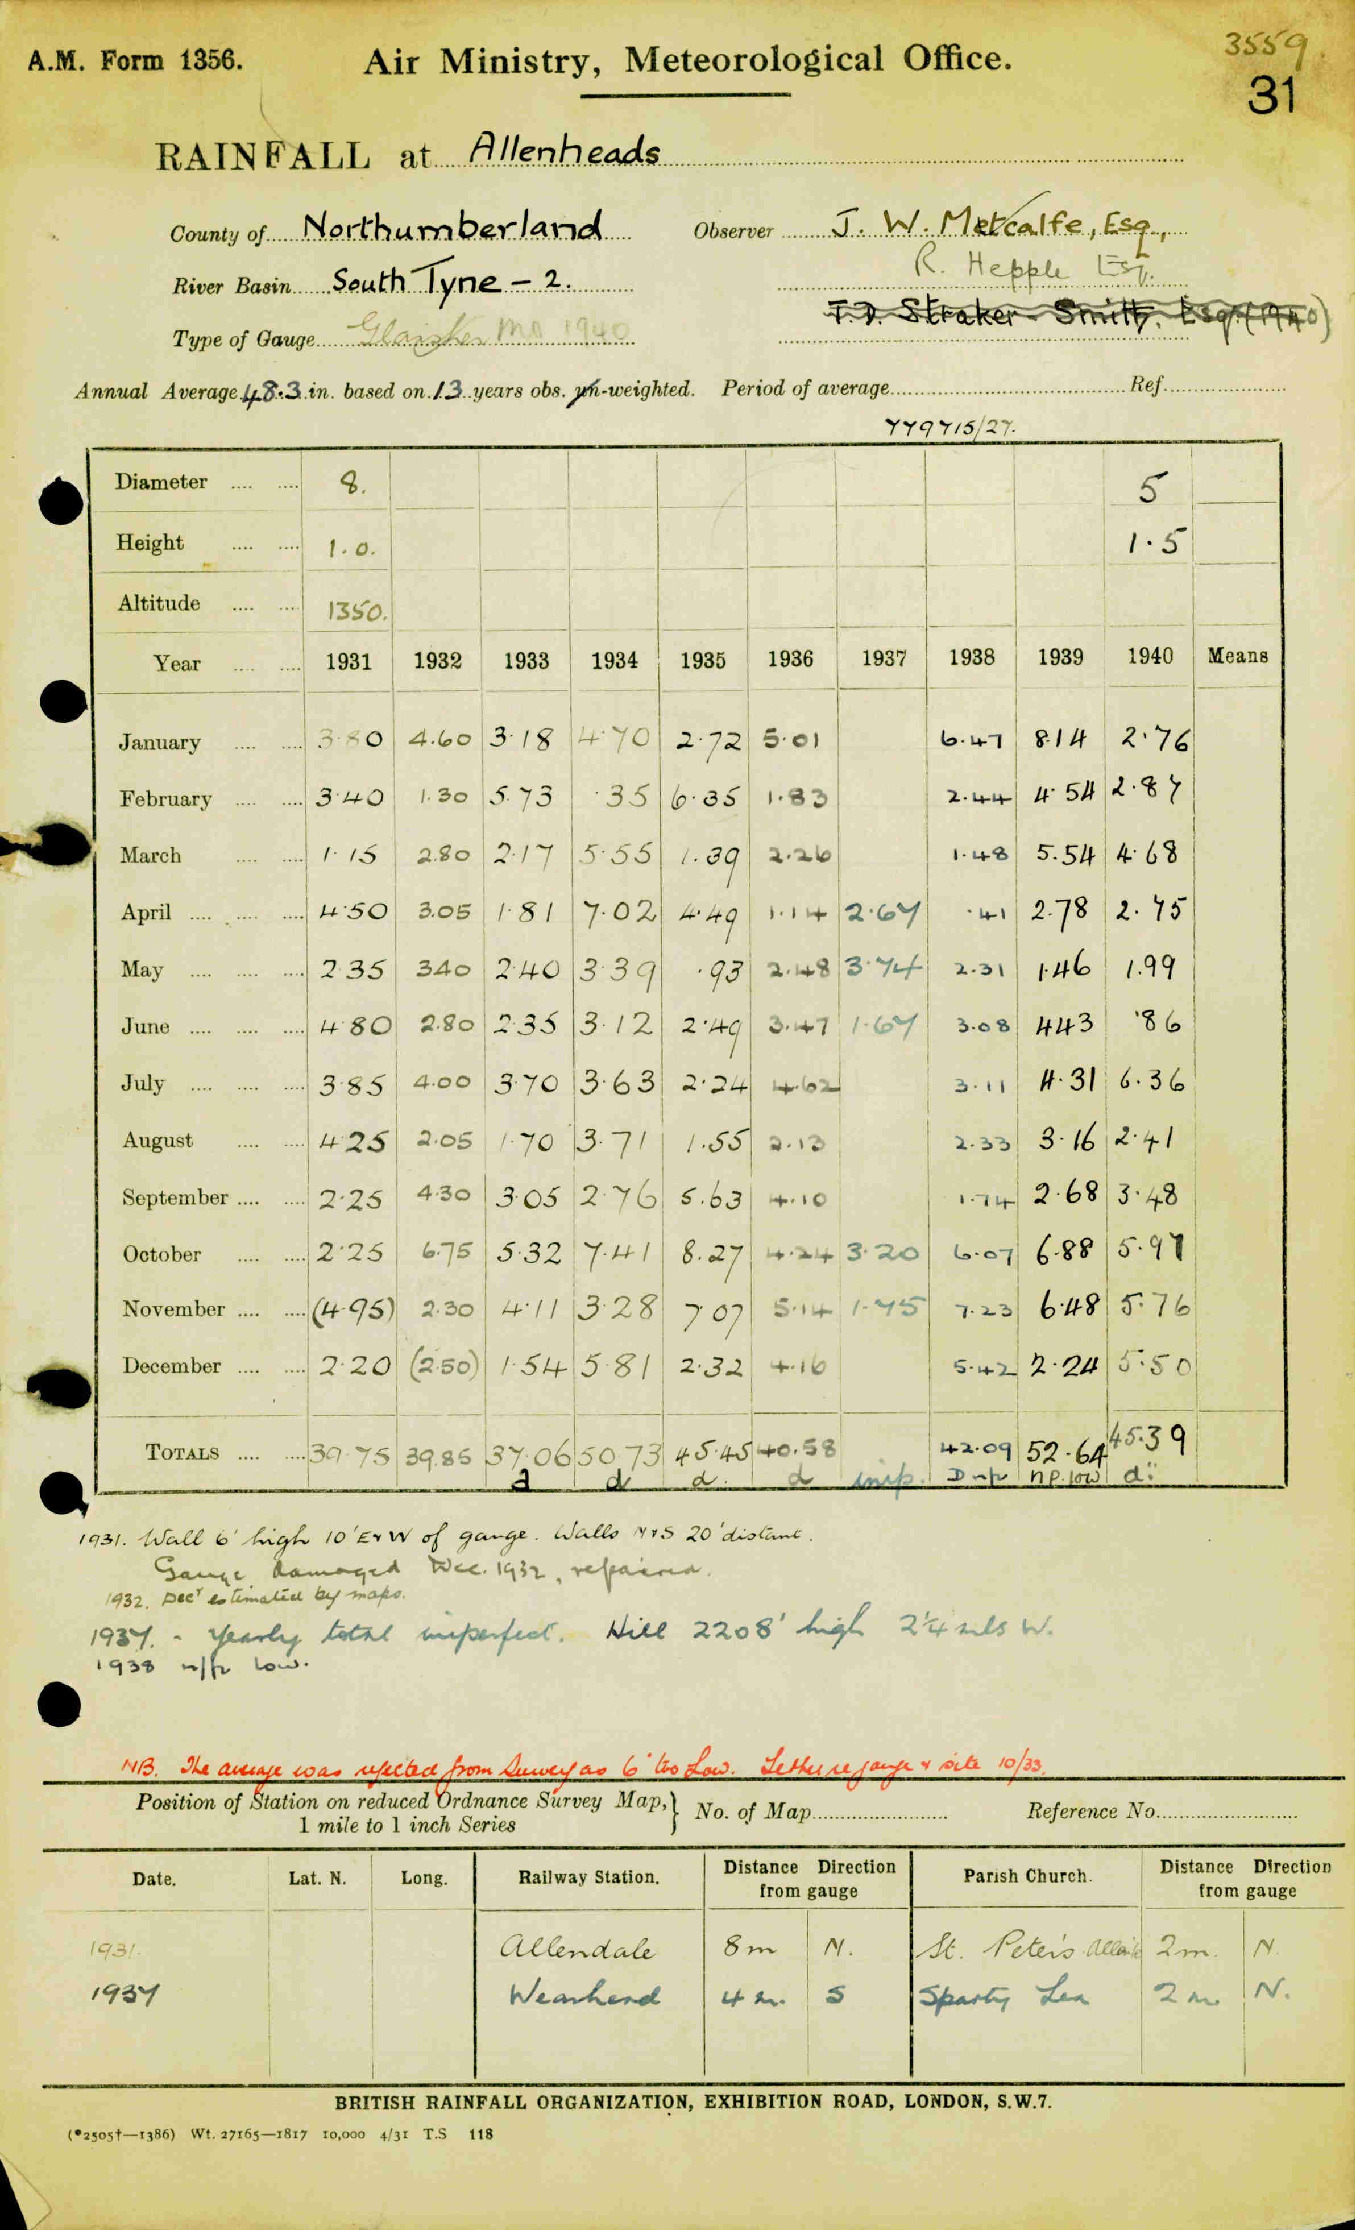 3559
A.M. Form 1356. Air Ministry, Meteorological Office. 31
RAINFALL at Allenheads
County of Northumberland Observer J. W. Metcalfe, Esq.,
R. Hepple Esq.
River Basin South Tyne - 2.
T. D. Straker - Smith, Esq. (1940)
Type of Gauge Glaisher MO 1940
Annual Average 48.3 in. based on 13 years obs. un-weighted. Period of average Ref.
779715/27.
Diameter 8. 5
Height 1.0. 1.5
Altitude 1350.
Year 1931 1932 1933 1934 1935 1936 1937 1938 1939 1940 Means
January 3.80 4.60 3.18 4.70 2.72 5.01 6.47 8.14 2.76
February 3.40 1.30 5.73 .35 6.35 1.83 2.44 4.54 2.87
March 1.15 2.80 2.17 5.55 1.39 2.26 1.48 5.54 4.68
April 4.50 3.05 1.81 7.02 4.49 1.14 2.67 .41 2.78 2.75
May 2.35 3.40 2.40 3.39 .93 2.48 3.74 2.31 1.46 1.99
June 4.80 2.80 2.35 3.12 2.49 3.47 1.67 3.08 4.43 .86
July 3.85 4.00 3.70 3.63 2.24 4.62 3.11 4.31 6.36
August 4.25 2.05 1.70 3.71 1.55 2.13 2.33 3.16 2.41
September 2.25 4.30 3.05 2.76 5.63 4.10 1.74 2.68 3.48
October 2.25 6.75 5.32 7.41 8.27 4.24 3.20 6.07 6.88 5.97
November (4.95) 2.30 4.11 3.28 7.07 5.14 1.75 7.23 6.48 5.76
December 2.20 (2.50) 1.54 5.81 2.32 4.16 5.42 2.24 5.50
TOTALS 39.75 39.85 37.06 50.73 45.45 40.58 42.09 52.64 45.39
d d d. d imp. D n/p n.p. low d:
1931. Wall 6' high 10' E & W of gauge. Walls N & S 20' distant.
Gauge damaged Dec. 1932, repaired.
1932. Decr estimated by maps.
1937. - Yearly total imperfect. Hill 2208' high 2¼ mls W.
1938 n/p low.
NB. The average was rejected from Survey as 6" too low. Letter re gauge & site 10/33.
Position of Station on reduced Ordnance Survey Map, } No. of Map Reference No.
1 mile to 1 inch Series
Date. Lat. N. Long. Railway Station. Distance Direction from gauge Parish Church. Distance Direction from gauge
1931. Allendale 8m N. St. Peter's 2m. N.
1937 Wearhead 4 m. S Sparty Lea 2 m. N.
BRITISH RAINFALL ORGANIZATION, EXHIBITION ROAD, LONDON, S.W.7.
(*2505†—1386) Wt. 27165—1817 10,000 4/31 T.S 118